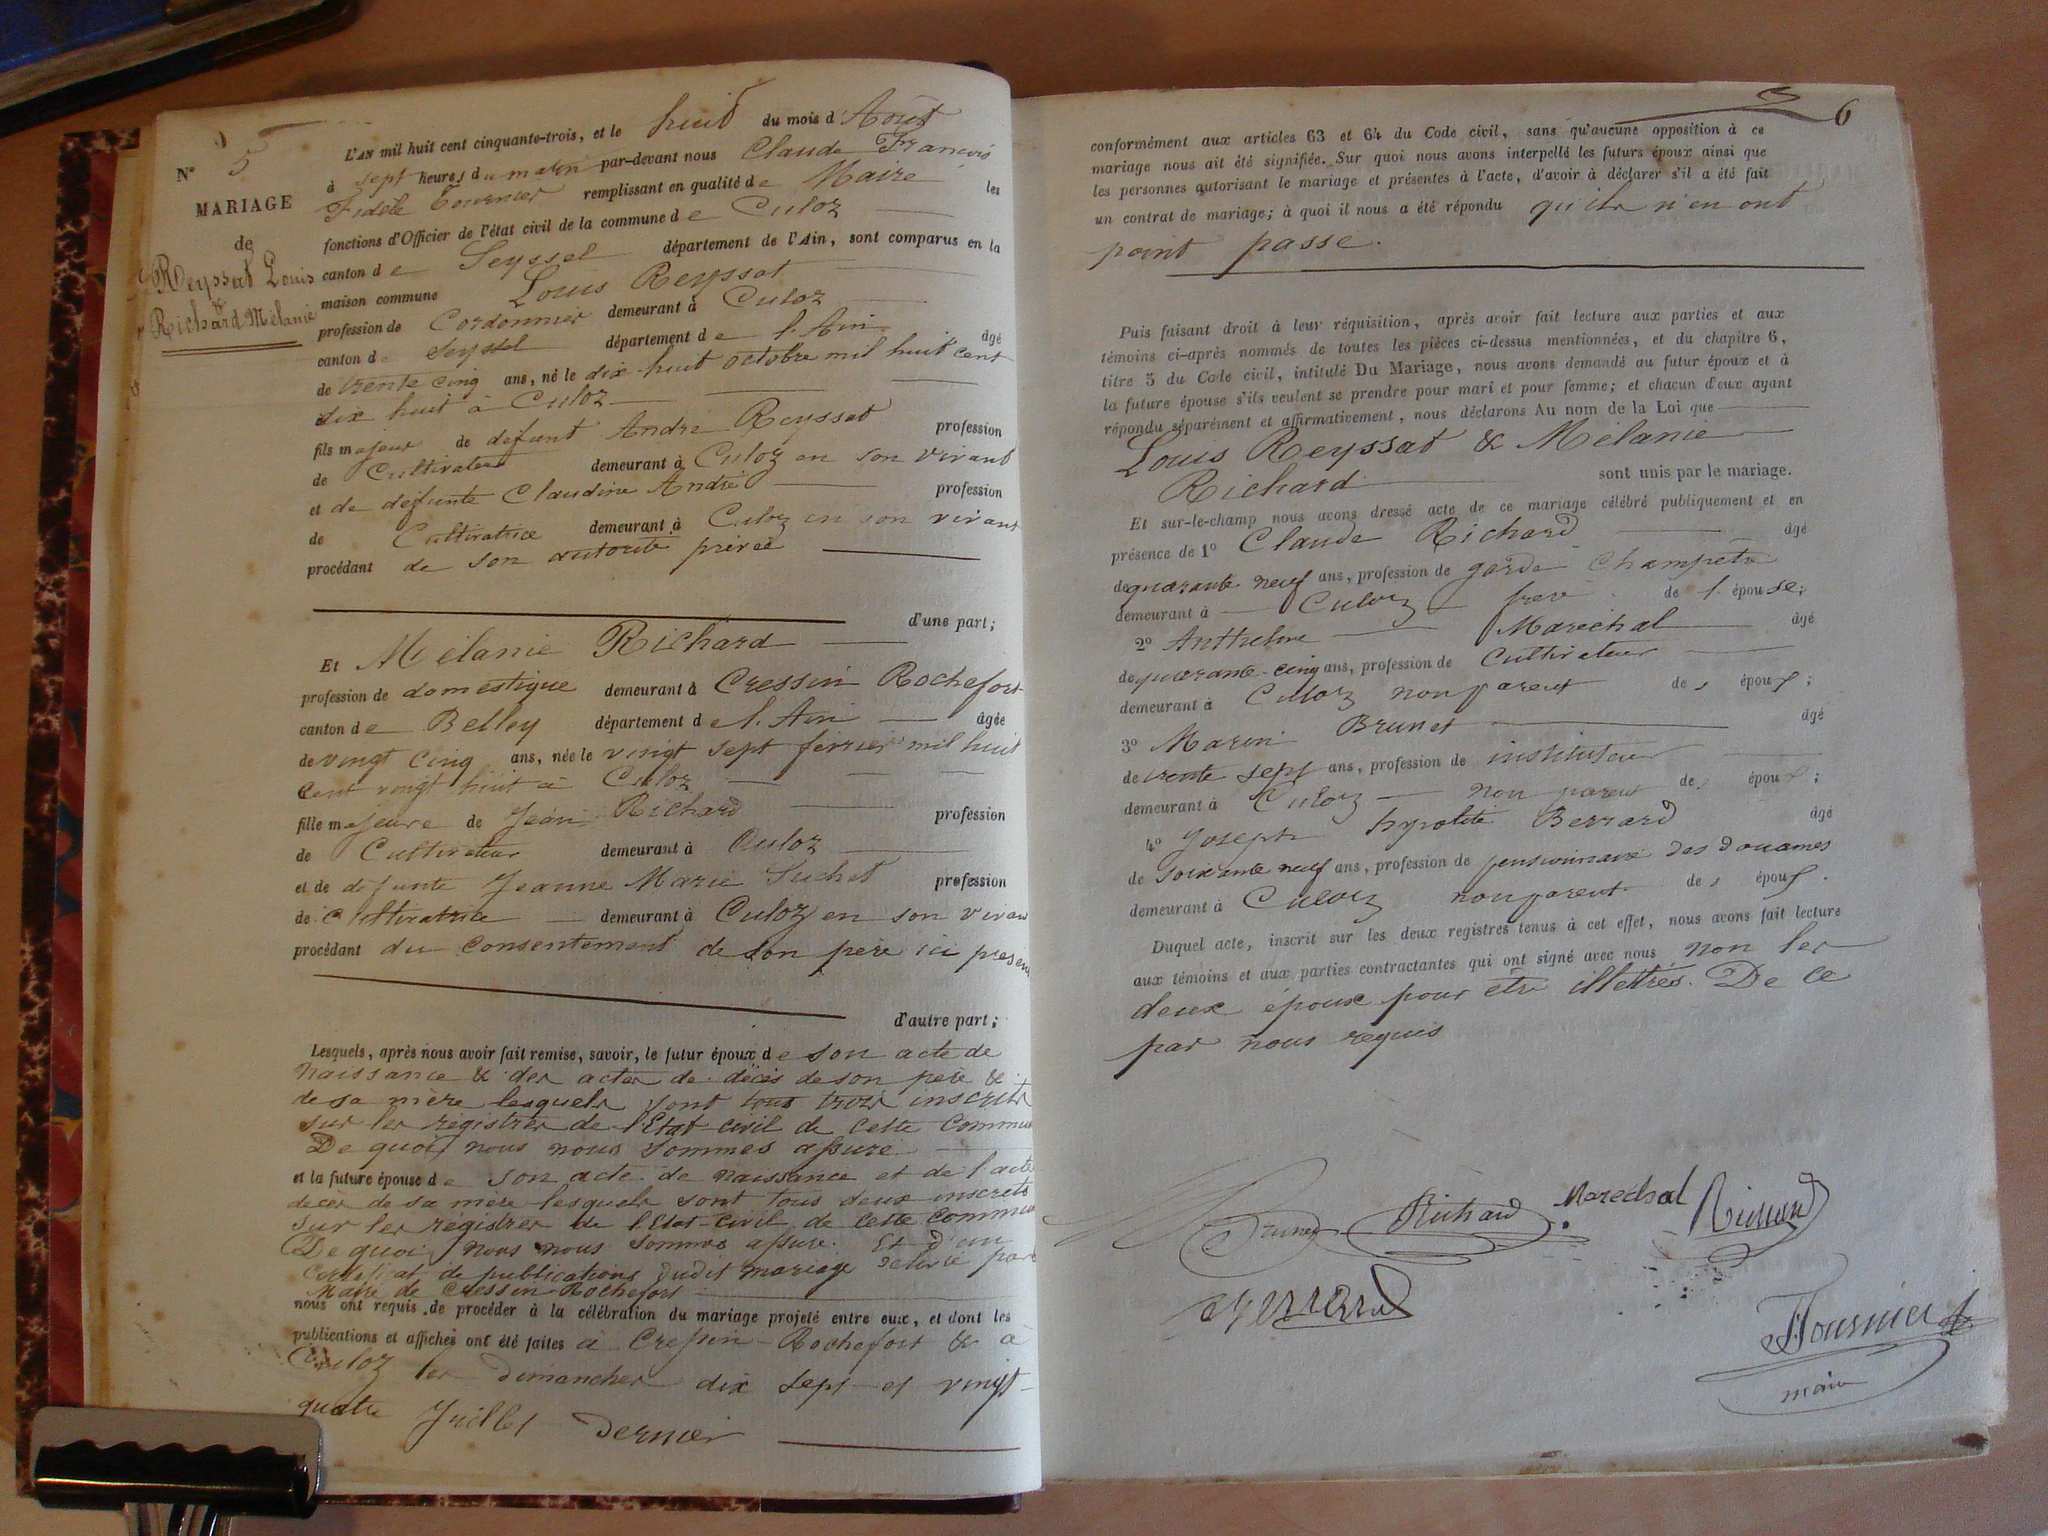 N° 5
MARIAGE
de
Reyssat Louis
&
Richard Mélanie
L'AN mil huit cent cinquante-trois, et le huit du mois d'Août
à sept heures du matin par-devant nous Claude François
Fidèle Tournier remplissant en qualité de Maire les
fonctions d'Officier de l'état civil de la commune de Culoz
canton de Seyssel département de l'Ain, sont comparus en la
maison commune Louis Reyssat
profession de Cordonnier demeurant à Culoz
canton de Seyssel département de l'Ain âgé
de trente cinq ans, né le dix-huit octobre mil huit cent
dix huit à Culoz
fils majeur de défunt André Reyssat profession
de Cultivateur demeurant à Culoz en son vivant
et de défunte Claudine André profession
de Cultivatrice demeurant à Culoz en son vivant
procédant de son autorité privée
d'une part;
Et Mélanie Richard
profession de domestique demeurant à Cressin Rochefort
canton de Belley département de l'Ain âgée
de vingt cinq ans, née le vingt sept février mil huit
cent vingt huit à Culoz
fille majeure de Jean Richard profession
de Cultivateur demeurant à Culoz
et de défunte Jeanne Marie Suchet profession
de Cultivatrice demeurant à Culoz en son vivan
procédant du consentement de son père ici présen
d'autre part;
Lesquels, après nous avoir fait remise, savoir, le futur époux de son acte de
naissance & des actes de décès de son père &
de sa mère lesquels sont tous trois inscrits
sur les registres de l'Etat-civil de cette commun
De quoi nous nous sommes assuré
et la future épouse de son acte de naissance et de l'acte
décès de sa mère lesquels sont tous deux inscrits
sur les registres de l'Etat-civil de cette commun
De quoi nous nous sommes assuré. Et d'un
certificat de publications dudit mariage délivré par
Maire de Cressin Rochefort
nous ont requis de procéder à la célébration du mariage projeté entre eux, et dont les
publications et affiches ont été faites à Cressin-Rochefort & à
Culoz les Dimanches dix sept et vingt-
quatre Juillet dernier
6
conformément aux articles 63 et 64 du Code civil, sans qu'aucune opposition à ce
mariage nous ait été signifiée. Sur quoi nous avons interpellé les futurs époux ainsi que
les personnes autorisant le mariage et présentes à l'acte, d'avoir à déclarer s'il a été fait
un contrat de mariage; à quoi il nous a été répondu qu'ils n'en ont
point passé.
Puis faisant droit à leur réquisition, après avoir fait lecture aux parties et aux
témoins ci-après nommés de toutes les pièces ci-dessus mentionnées, et du chapitre 6,
titre 5 du Code civil, intitulé Du Mariage, nous avons demandé au futur époux et à
la future épouse s'ils veulent se prendre pour mari et pour femme; et chacun d'eux ayant
répondu séparément et affirmativement, nous déclarons Au nom de la Loi que
Louis Reyssat & Mélanie
Richard sont unis par le mariage.
Et sur-le-champ nous avons dressé acte de ce mariage célébré publiquement et en
présence de 1° Claude Richard âgé
de quarante neuf ans, profession de garde Champêtre
demeurant à Culoz frère de l'épouse;
2° Anthelme Maréchal âgé
de quarante-cinq ans, profession de Cultivateur
demeurant à Culoz non parent des époux;
3° Marin Brunet âgé
de trente sept ans, profession de instituteur
demeurant à Culoz non parent des époux;
4° Joseph hypolite Berrard âgé
de soixante neuf ans, profession de pensionnaire des douanes
demeurant à Culoz non parent des époux.
Duquel acte, inscrit sur les deux registres tenus à cet effet, nous avons fait lecture
aux témoins et aux parties contractantes qui ont signé avec nous non les
deux époux pour être illettrés. De ce
par nous requis
Brunet Richard Marechal Richard
Berrard
Tournier
maire